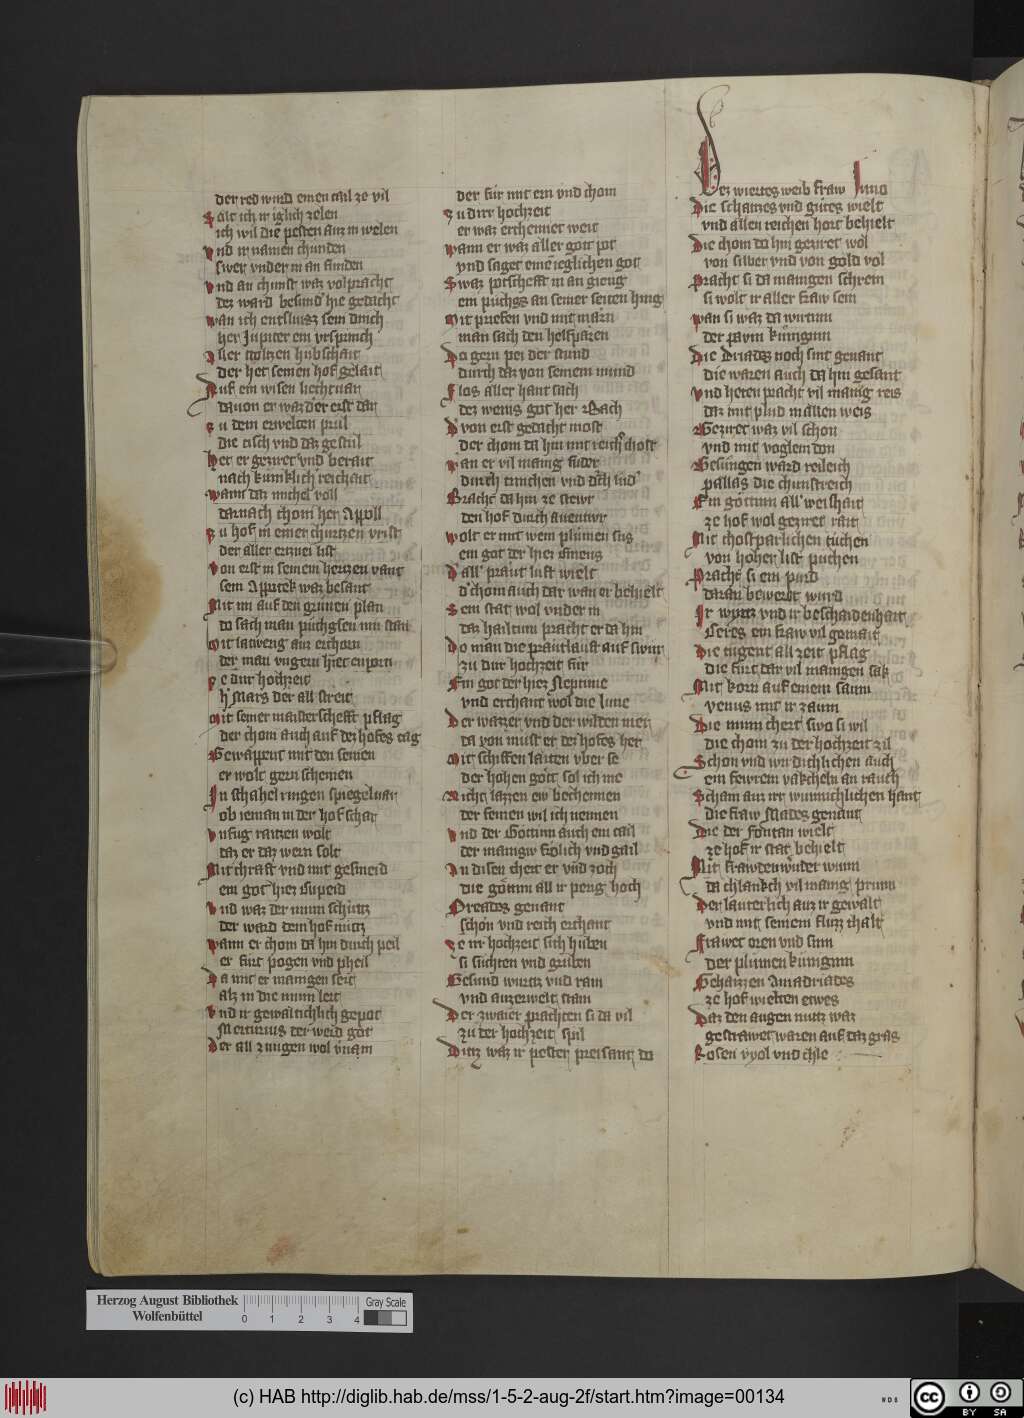 der red wurd einen tail ze vil
Solt ich ir iglich zelen
ich wil die pesten auz in welen
Vnd ir namen chunden
swer vnder in an sunden
Vnd an chunst waz volpracht
dez ward besund' hie gedacht
Wan ich entsluisz sein dinch
her Jupiter ein vrsprinch
Aller stoltzen hubschait
der het seinen hof gelait
Auf ein wisen liechtuar
dauon er waz d'er erst dar
Zu dem erwelten pruil
die tisch vnd daz gestuil
Het er geziret vnd berait
nach kuniklich reichait
Wann daz michel voll
darnach chom her Appoll
Zu hof in einer churtzen vrist
der aller ertznei list
Von erst in seinem hertzen vant
sein Appotek waz besant
Mit im auf den grunen plan
do sach man puchgsen mit stan
Mit latweng auz erchorn
der man vngern hiet enporn
Ze dirr hochzeit
h' Mars der all streit
Mit seiner maisterschefft pflag
der chom auch auf dez hofes tag
Gewappent mit den seinen
er wolt gern scheinen
In stahel ringen spiegeluar
ob ieman in der hof schar
Vnfug raitzen wolt
daz er daz wern solt
Mit chraft vnd mit gesmeid
ein got hiez Cupeid
Vnd waz der minn schuitz
der ward dem hof nuitz
Wann er chom da hin durch peil
er furt pogen vnd pheil
Da mit er manigen seit
alz in die minn leit
Vnd ir gewaltichlich gepot
Mercurius der werd got
Der all zungen wol vnam
der fur mit ein vnd chom
Zu dirr hochzeit
er waz erchennet weit
Wann er waz aller gott pot
vnd saget eine ieglichen got
Swaz potschefft man an gieng
ein puchgs an seiner seiten hing
Mit priefen vnd mit marn
man sach den helfparen
Da gern pei der stund
durch daz von seinem mund
Flos aller hant sach
dez weins got her Bach
D' von erst gedacht most
der chom da hin mit reich' chost
Wan er vil manig fuder
durch trinchen vnd d'ch lud'
Bracht da hin ze stewr
den hof durch auentwr
Wolt er mit wem plumen sus
ein got der hiez Smeus
D' all' praut lust wielt
d' chom auch dar wan er behielt
Sein stat wol vnder in
daz hailtum pracht er da hin
Do man die prautlauft auf swur
zu dirr hochzeit fur
Ein got der hiez Neptune
vnd erchant wol die lune
Der wazzer vnd der wilden mer
da von must er dez hofes her
Mit schiffen laiten vber se
der hohen gott sol ich me
Nicht lazzen ew bechennen
der feinen wil ich nennen
Vnd der Gottinn auch ein tail
der manigw frolich vnd gail
An disen chert er vnd zoch
die gottin all ir peng hoch
Oreades genant
schon vnd reich erchant
Ze irr hochzeit sich huben
si suchten vnd gruben
Gesund wurtz vnd rain
vnd auzerwelt stain
Der zwaier prachten si da vil
zu der hochzeit spil
Ditz waz ir pester preisant do
Dez wiertes weib fraw Juno
Die schatzes vnd gutes wielt
vnd allen reichen hort behielt
Die chom do hin geziret wol
von silber vnd von gold vol
Pracht si da manigen schrein
si wolt ir aller fraw sein
Wan si waz da wirtinn
der pavm kunginn
Die Driades noch sint genant
die waren auch da hin gesant
Vnd heten pracht vil manig reis
daz mit plud mallen weis
Geziret waz vil schon
vnd mit voglein don
Gesungen ward reileich
pallas die chunstreich
Ein gottinn all' weishait
ze hof wol geziret rait
Mit chostparlichen tuchen
von hoher list puchen
Pracht si ein purd
daran bewerbt wurd
Ir wirtz vnd ir beschaidenhait
Ceres ein fraw vil gemait
Die tugent all zeit pflag
die furt dar vil manigen sak
Mit korn auf einem saum
venus mit ir zaum
Die minn chert swo si wil
die chom zu der hochzeit zil
Schon vnd wirdichlichen auch
ein fewrein vakcheln an rauch
Scham auz irr wunnichlichen hant
die fraw Mades genant
Die der Fontan wielt
ze hof ir stat behielt
Mit frawdenwndet wunn
da chlankch vil manig prunn
Der lauterlich auz ir gewalt
vnd mit seinem fluzz thalt
Frawet oren vnd sinn
der plumen kuniginn
Gehaizzen Amadriades
ze hof wielten etwes
Daz den augen nutz waz
gestrawet waren auf daz gras
Rosen vyol vnd chle
Herzog August Bibliothek
Wolfenbüttel
0 1 2 3 4
Gray Scale
(c) HAB http://diglib.hab.de/mss/1-5-2-aug-2f/start.htm?image=00134
WD6
cc BY SA